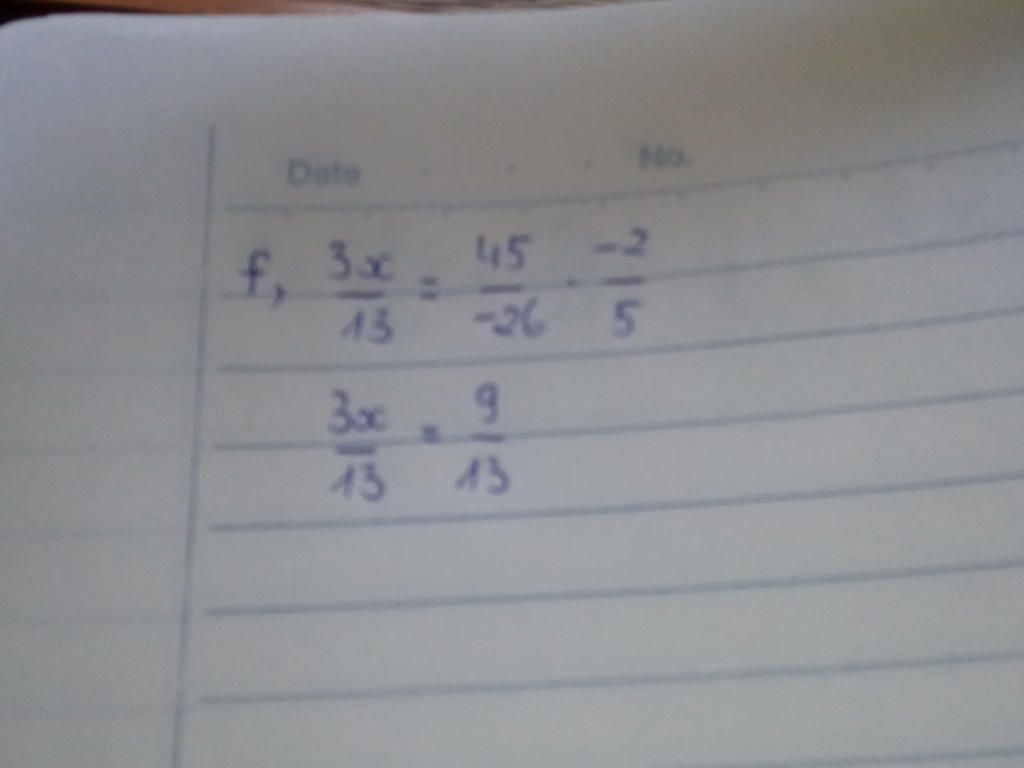 Date . . . No.
f, 3x/13 = 45/-26 · -2/5
3x/13 = 9/13